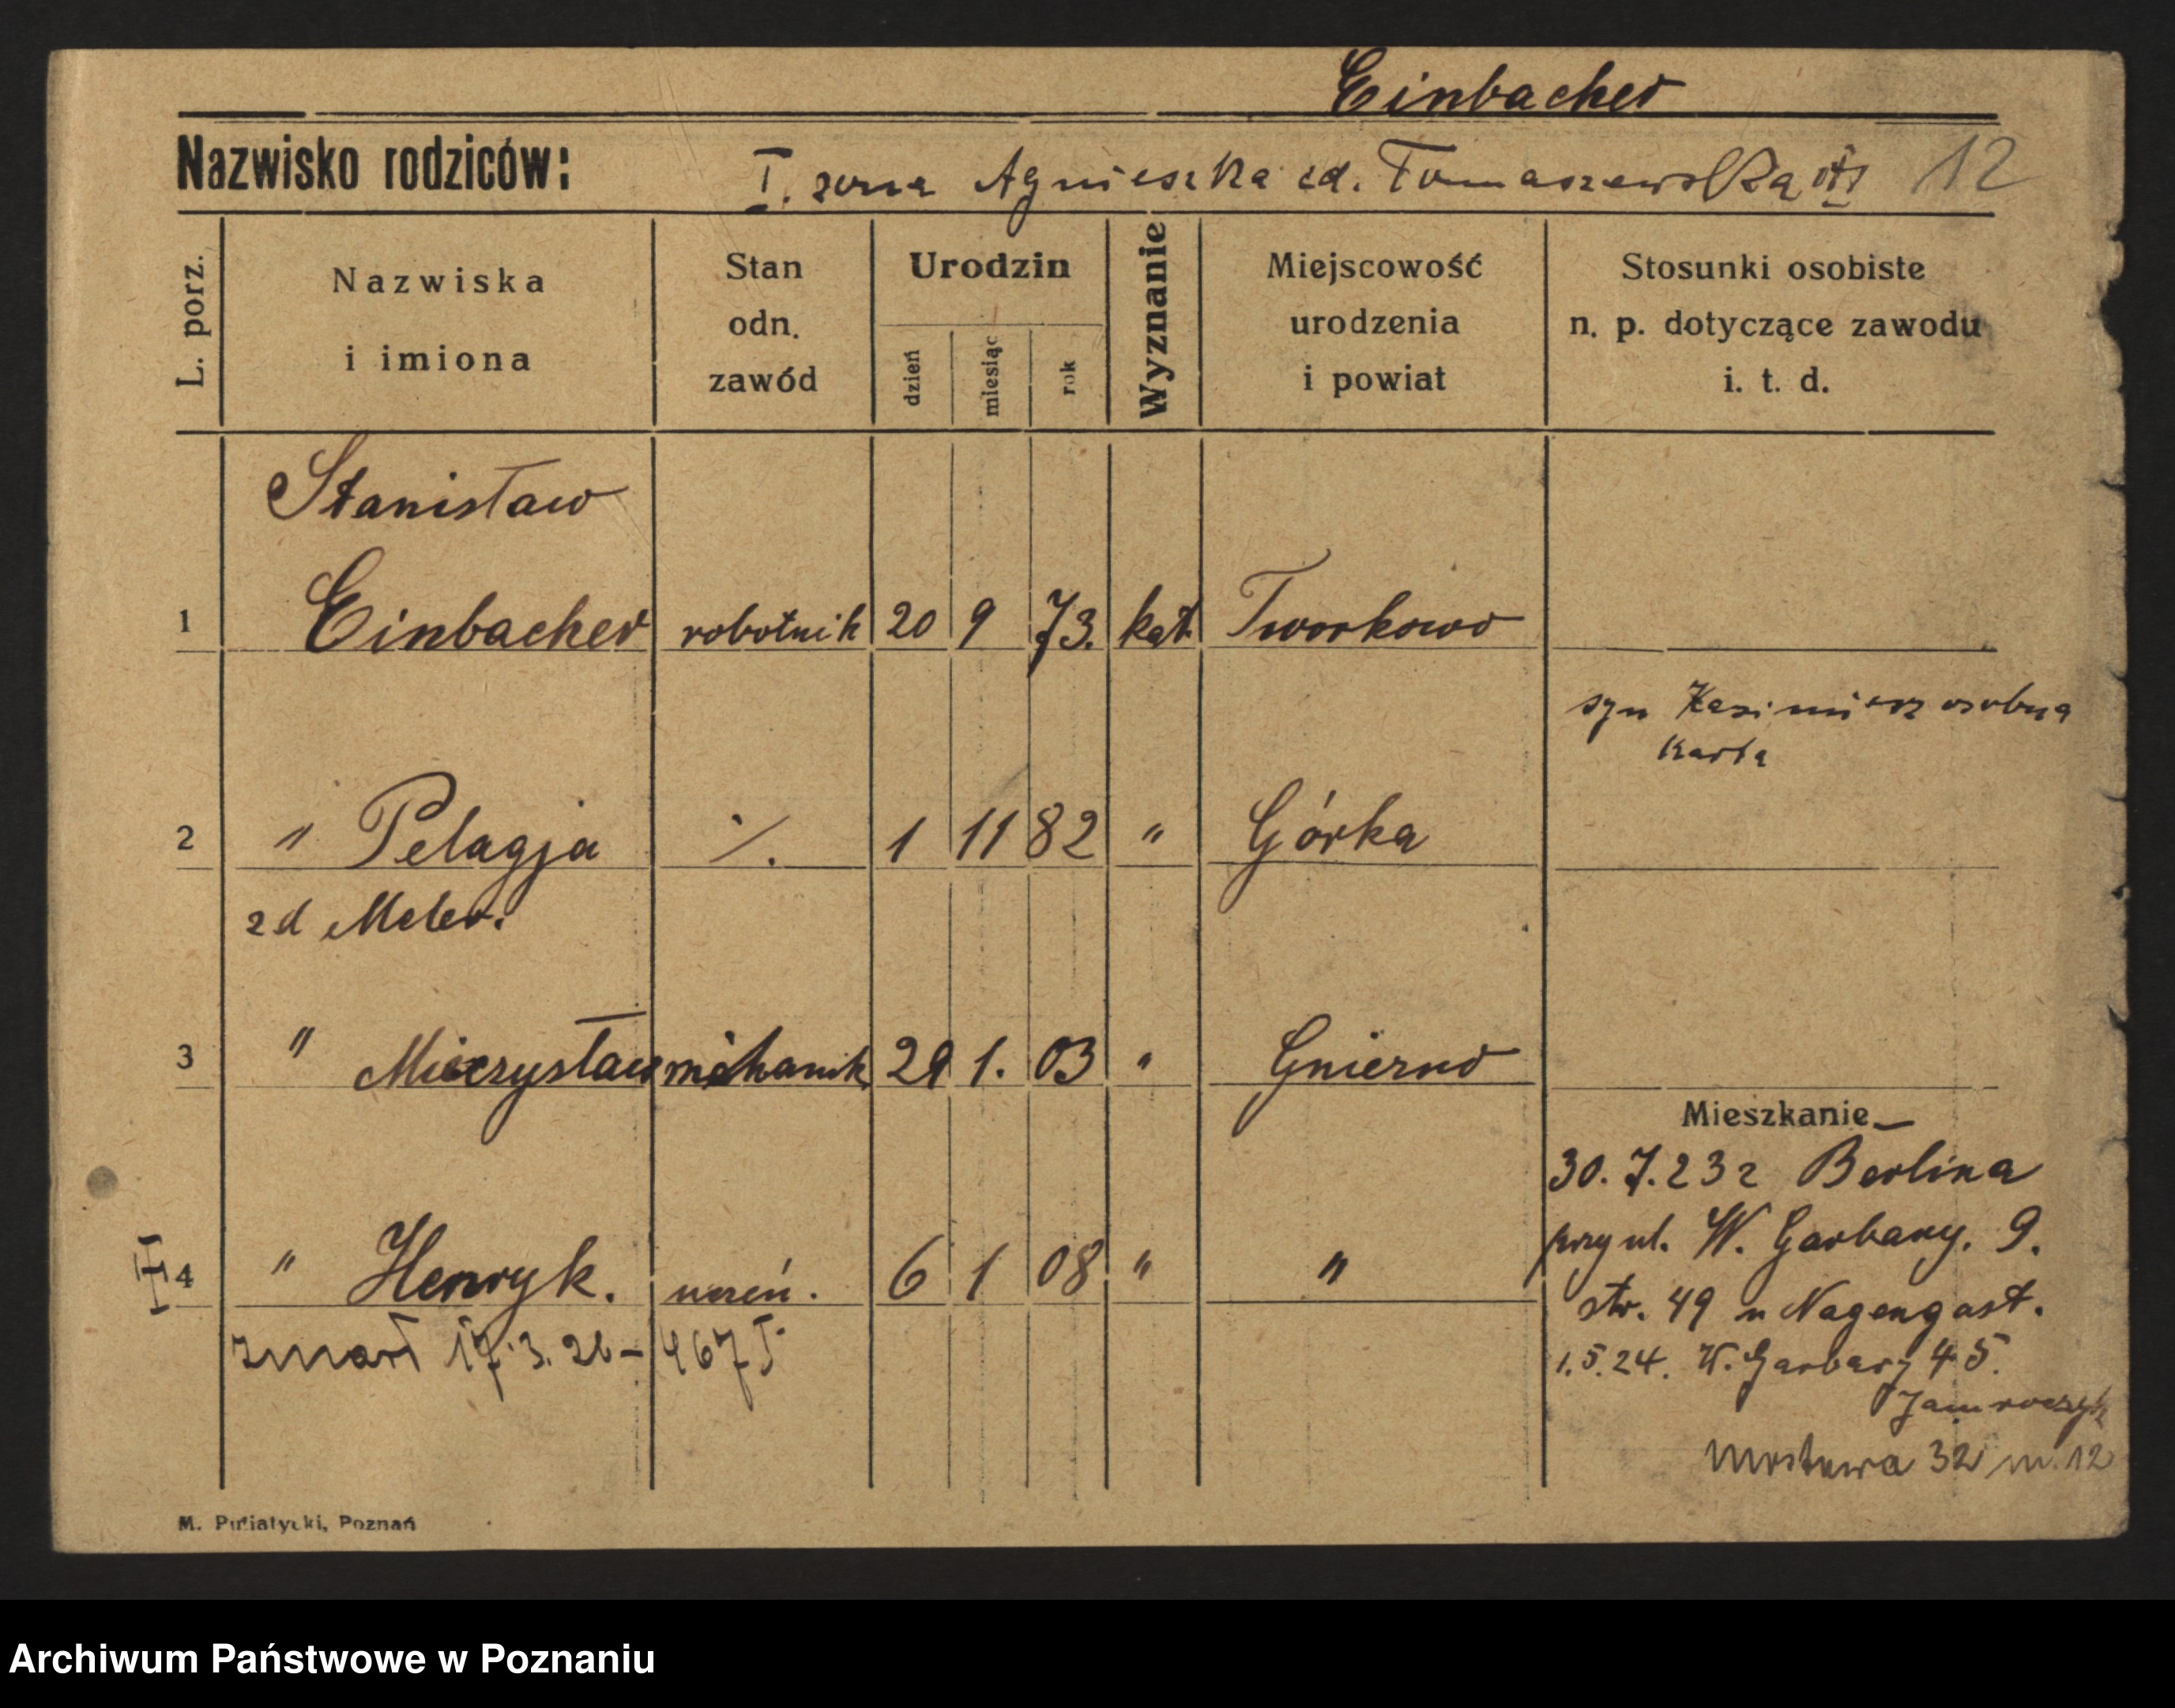 Einbacher
Nazwisko rodziców: I. żona Agnieszka zd. Tomaszewska 12
L. porz. Nazwiska i imiona Stan odn. zawód Urodzin dzień miesiąc rok Wyznanie Miejscowość urodzenia i powiat Stosunki osobiste n. p. dotyczące zawodu i. t. d.
Stanisław
1 Einbacher robotnik 20 9 73. kat. Tworkowo
syn Kazimierz osobna
karta
2 " Pelagja ./. 1 11 82 " Górka
zd Meler.
3 " Mieczysław mechanik 29 1. 03 " Gniezno
Mieszkanie
30.7.23 z Berlina
przy ul. W. Garbary. 9.
4 " Henryk. uczeń. 6 1 08 " "
str. 49 u Nagengast.
zmarł 17.3.26 - 467 I
1.5.24. W. Garbary 45.
Jamroczyk
Mostowa 32 m. 12
M. Putiatycki, Poznań
Archiwum Państwowe w Poznaniu